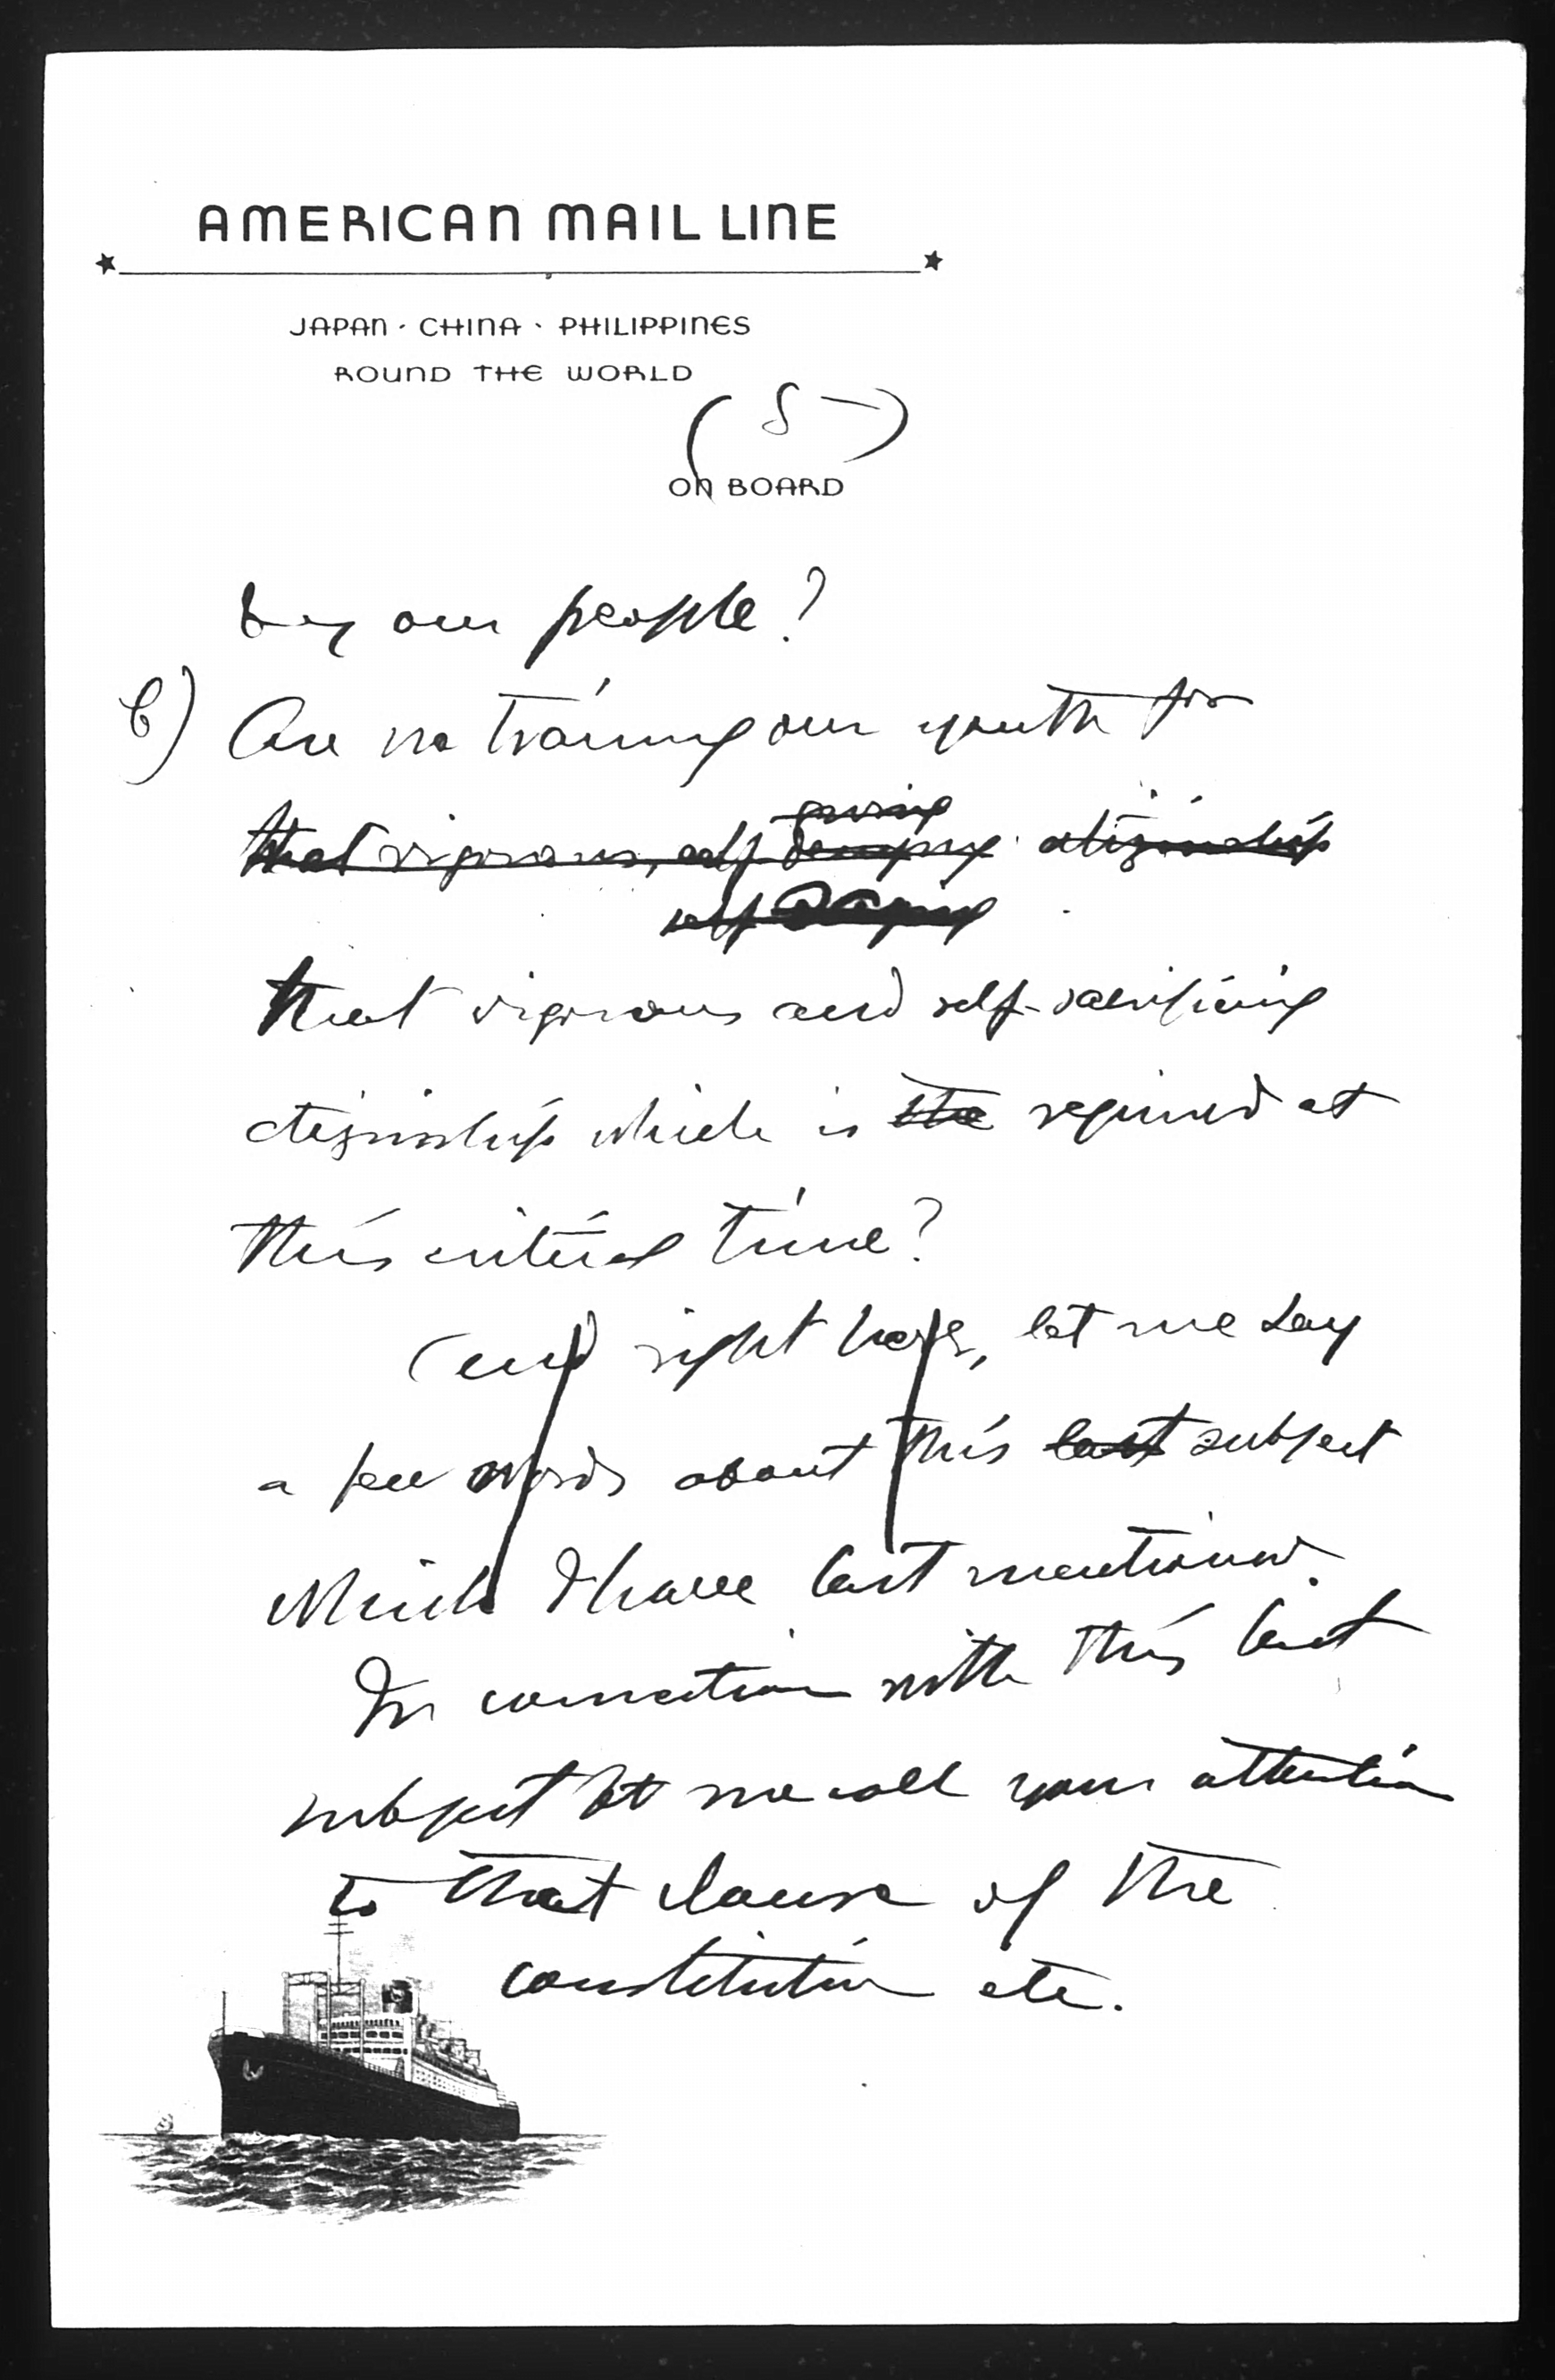 AMERICAN MAIL LINE
JAPAN · CHINA · PHILIPPINES
ROUND THE WORLD
(5)
ON BOARD
by our people?
6) Are we training our youth for
giving
that vigorous, self denying citizenship
self
that vigorous and self-sacrificing
citizenship which is the required at
this critical time?
And right here, let me say
a few words about this last subject
which I have last mentioned.
In connection with this last
subject let me call your attention
to that clause of the
constitution etc.